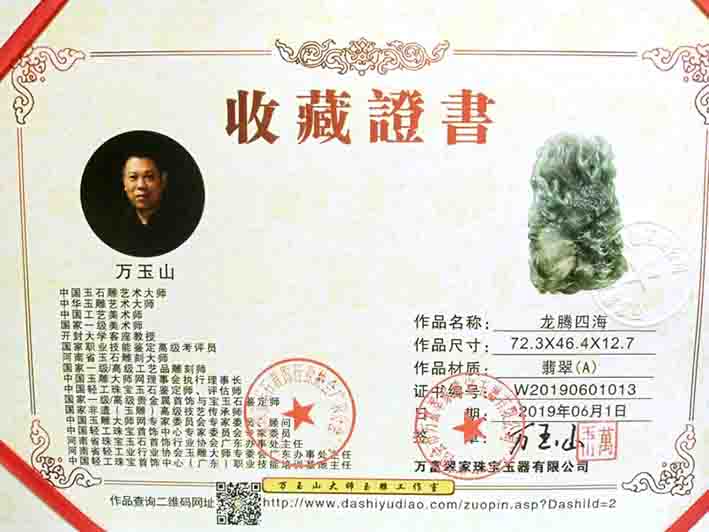 收藏證書
万玉山
中国玉石雕艺术大师
中华玉雕艺术大师
中国工艺美术师
国家一级美术师
开封大学客座教授
国家职业技能鉴定高级考评员
河南省玉石雕刻大师
国家一级/高级工艺品雕刻师
中国玉雕大师网理事会执行理事长
中国轻工珠宝玉石鉴定师、评估师
国家一级/高级贵金属首饰与宝玉石鉴定师
国家非遗（玉雕）高级技艺传承师
中国玉雕大师网专家委员会专家、顾问
中国轻工珠宝首饰中心专家委员会专家委员
河南省珠宝玉石首饰行业协会广东办事处主任
中国轻工业行业协会玉雕大师专委会广东办事处主任
中国轻工珠宝首饰中心（广东）职业技能培训基地主任
作品名称: 龙腾四海
作品尺寸: 72.3X46.4X12.7
作品材质: 翡翠(A)
证书编号: W20190601013
日期: 2019年06月1日
万玉山
万富翠家珠宝玉器有限公司
万玉山大师玉雕工作室
作品查询二维码网址
http://www.dashiyudiao.com/zuopin.asp?DashiId=2